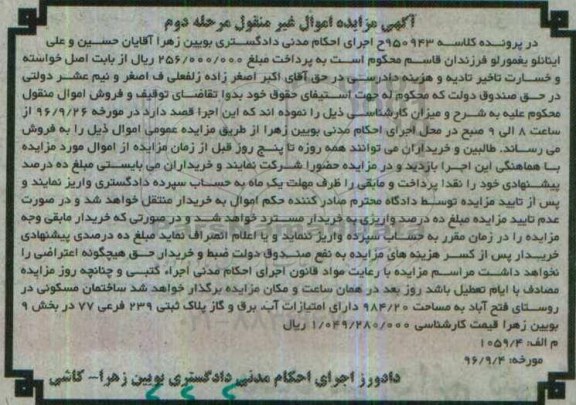 آگهی مزایده اموال غیر منقول مرحله دوم
در پرونده کلاسه ۹۵۰۹۴۳ح اجرای احکام مدنی دادگستری بویین زهرا آقایان حسین و علی
اینانلو یغمورلو فرزندان قاسم محکوم است به پرداخت مبلغ ۲۵۶/۰۰۰/۰۰۰ ریال از بابت اصل خواسته
و خسارت تاخیر تادیه و هزینه دادرسی در حق آقای اکبر اصغر زاده زلفعلی ف اصغر و نیم عشر دولتی
در حق صندوق دولت که محکوم له جهت استیفای حقوق خود بدوا تقاضای توقیف و فروش اموال منقول
محکوم علیه به شرح و میزان کارشناسی ذیل را نموده اند که این اجرا قصد دارد در مورخه ۹۶/۹/۲۶ از
ساعت ۸ الی ۹ صبح در محل اجرای احکام مدنی بویین زهرا از طریق مزایده عمومی اموال ذیل را به فروش
می رساند. طالبین و خریداران می توانند همه روزه تا پنج روز قبل از زمان مزایده از اموال مورد مزایده
با هماهنگی این اجرا بازدید و در مزایده حضورا شرکت نمایند و خریداران می بایستی مبلغ ده درصد
پیشنهادی خود را نقدا پرداخت و مابقی را ظرف مهلت یک ماه به حساب سپرده دادگستری واریز نمایند و
پس از تایید مزایده توسط دادگاه محترم صادر کننده حکم اموال به خریدار منتقل خواهد شد و در صورت
عدم تایید مزایده مبلغ ده درصد واریزی به خریدار مسترد خواهد شد و در صورتی که خریدار مابقی وجه
مزایده را در زمان مقرر به حساب سپرده واریز ننماید و یا اعلام انصراف نماید مبلغ ده درصدی پیشنهادی
خریدار پس از کسر هزینه های مزایده به نفع صندوق دولت ضبط و خریدار حق هیچگونه اعتراضی را
نخواهد داشت مراسم مزایده با رعایت مواد قانون اجرای احکام مدنی اجراء کتبی و چنانچه روز مزایده
مصادف با ایام تعطیل باشد روز بعد در همان ساعت و مکان مزایده برگذار خواهد شد ساختمان مسکونی در
روستای فتح آباد به مساحت ۹۸۴/۲۰ دارای امتیازات آب، برق و گاز پلاک ثبتی ۲۳۹ فرعی ۷۷ در بخش ۹
بویین زهرا قیمت کارشناسی ۱/۰۴۹/۲۸۰/۰۰۰ ریال
م الف: ۱۰۵۹/۴
مورخه: ۹۶/۹/۴
دادورز اجرای احکام مدنی دادگستری بویین زهرا– کاشی